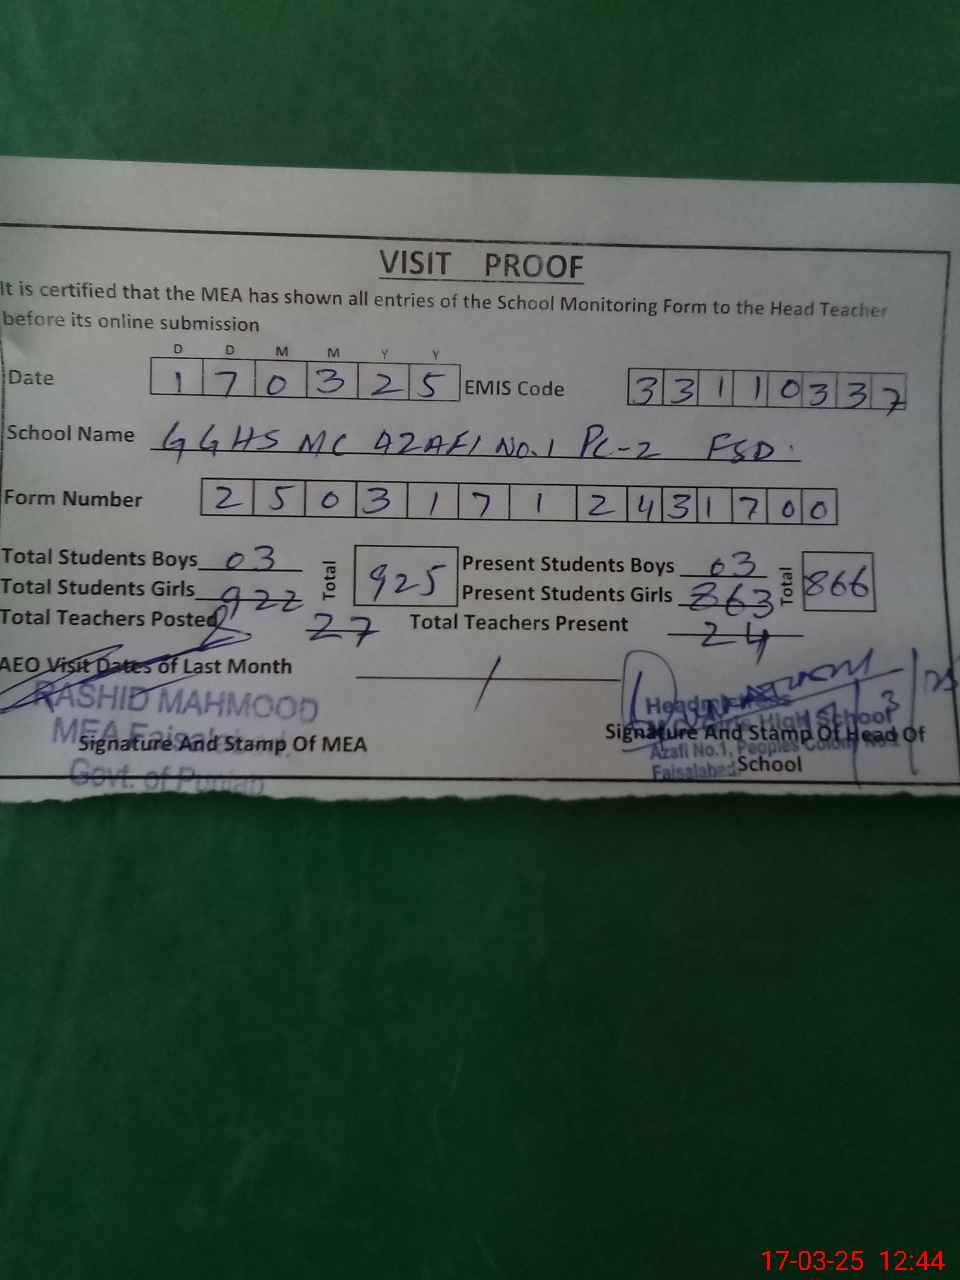 VISIT PROOF
It is certified that the MEA has shown all entries of the School Monitoring Form to the Head Teacher
before its online submission
D D M M Y Y
Date 1 7 0 3 2 5 EMIS Code 3 3 1 1 0 3 3 7
School Name GGHS MC AZAFI No.1 PC-2 FSD.
Form Number 2 5 0 3 1 7 1 2 4 3 1 7 0 0
Total Students Boys 03 Total 925 Present Students Boys 03 Total 866
Total Students Girls 922 Present Students Girls 863
Total Teachers Posted 27 Total Teachers Present 24
AEO Visit Dates of Last Month /
RASHID MAHMOOD
MEA Faisalabad
Govt. of Punjab
Signature And Stamp Of MEA
Headmistress
Girls High School
Azafi No.1, Peoples Colony
Faisalabad
Signature And Stamp Of Head Of
School
17-03-25 12:44